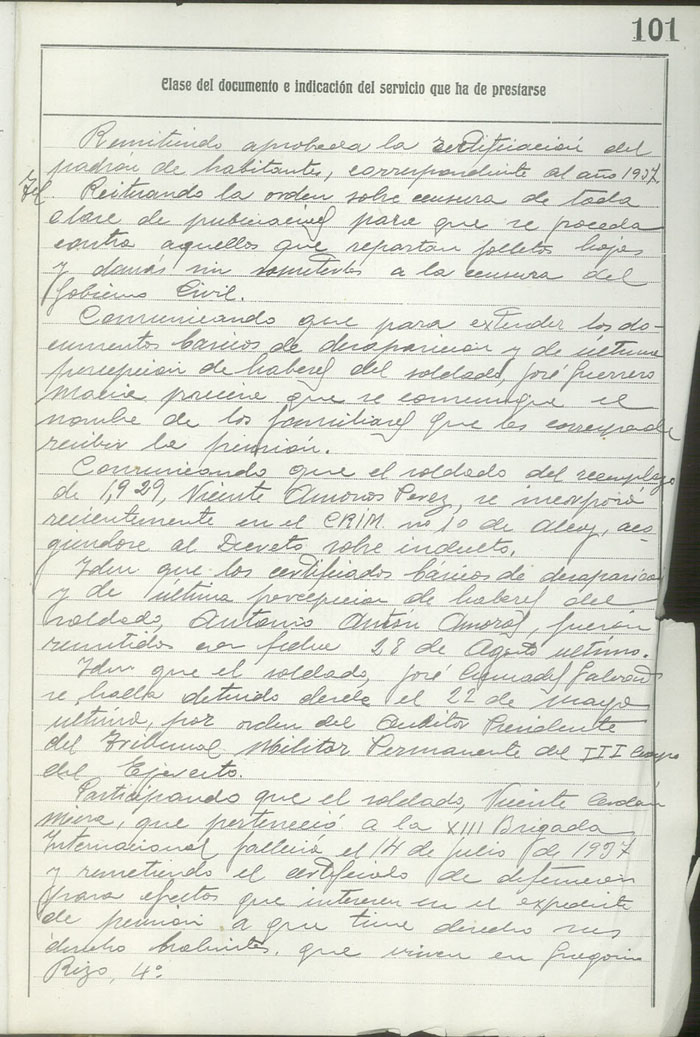 101
Clase del documento e indicación del servicio que ha de prestarse
Remitiendo aprobada la rectificación del
padrón de habitantes, correspondiente al año 1937.
Reiterando la orden sobre censura de toda
clase de publicaciones para que se proceda
contra aquellos que repartan folletos hojas
y demás sin someterles a la censura del
Gobierno Civil.
Comunicando que para extender los do-
cumentos básicos de desaparición y de última
percepción de haberes del soldado, José Guerrero
precise que se comunique el
nombre de los familiares que les corresponde
recibir la pensión.
Comunicando que el soldado del reemplazo
de 1,929, Vicente Amoros Perez, se incorporó
recientemente en el CRIM. nº 10 de Alcoy, aco-
giendose al Decreto sobre indulto.
Idem que los certificados básicos de desaparición
y de última percepción de haberes del
soldado, Antonio Antón Amorós, fueron
remitidos con fecha 28 de Agosto último.
Idem que el soldado, José
se halla detenido desde el 22 de Mayo
último, por orden del Auditor Presidente
del Tribunal Militar Permanente del III Cuerpo
del Ejercito.
Participando que el soldado, Vicente
Mira, que perteneció a la XIII Brigada
Internacional falleció el 14 de Julio de 1937
y remitiendo el certificado de defunción
para efectos que interesen en el expediente
de pensión a que tiene derecho sus
derecho habientes, que viven en Gregorio
Rizo, 4º